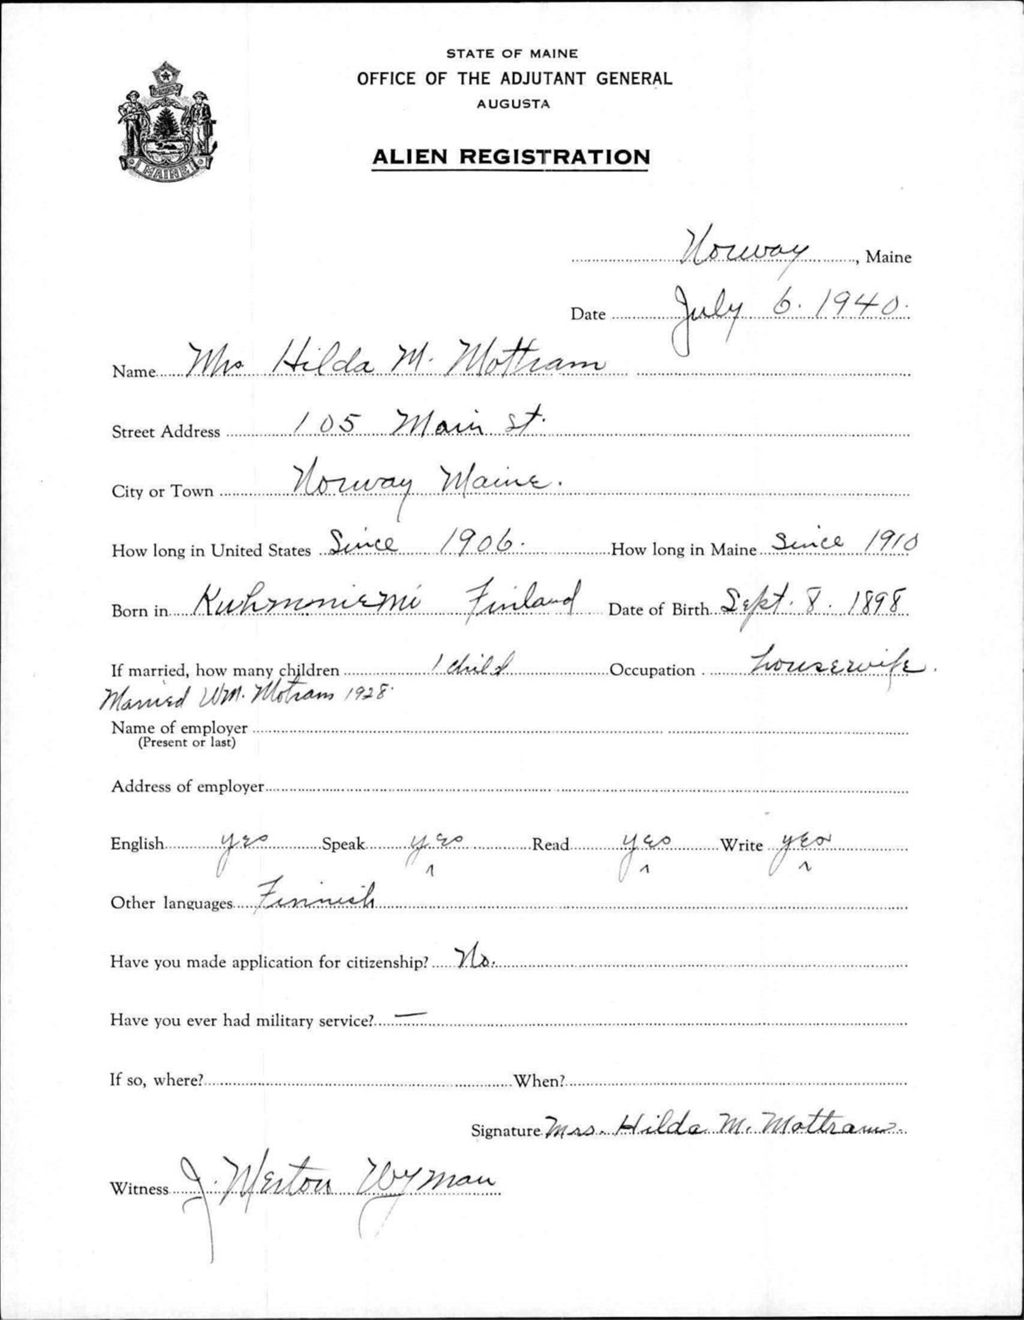 STATE OF MAINE
OFFICE OF THE ADJUTANT GENERAL
AUGUSTA
ALIEN REGISTRATION
MAINE
Norway, Maine
Date July 6. 1940.
Name Mrs Hilda M. Mottram
Street Address 105 Main St.
City or Town Norway Maine.
How long in United States Since 1906. How long in Maine Since 1910
Born in Kuhmoniemi Finland Date of Birth Sept. 8. 1898
If married, how many children 1 child Occupation housewife.
Married Wm. Motram 1928.
Name of employer
(Present or last)
Address of employer
English yes Speak yes Read yes Write yes
Other languages Finnish
Have you made application for citizenship? No.
Have you ever had military service? —
If so, where? When?
Signature Mrs. Hilda M. Mottram.
Witness J. Merton Wyman